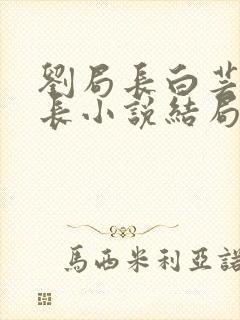 劉局長白芸
長小說結局
馬西米利亞諾